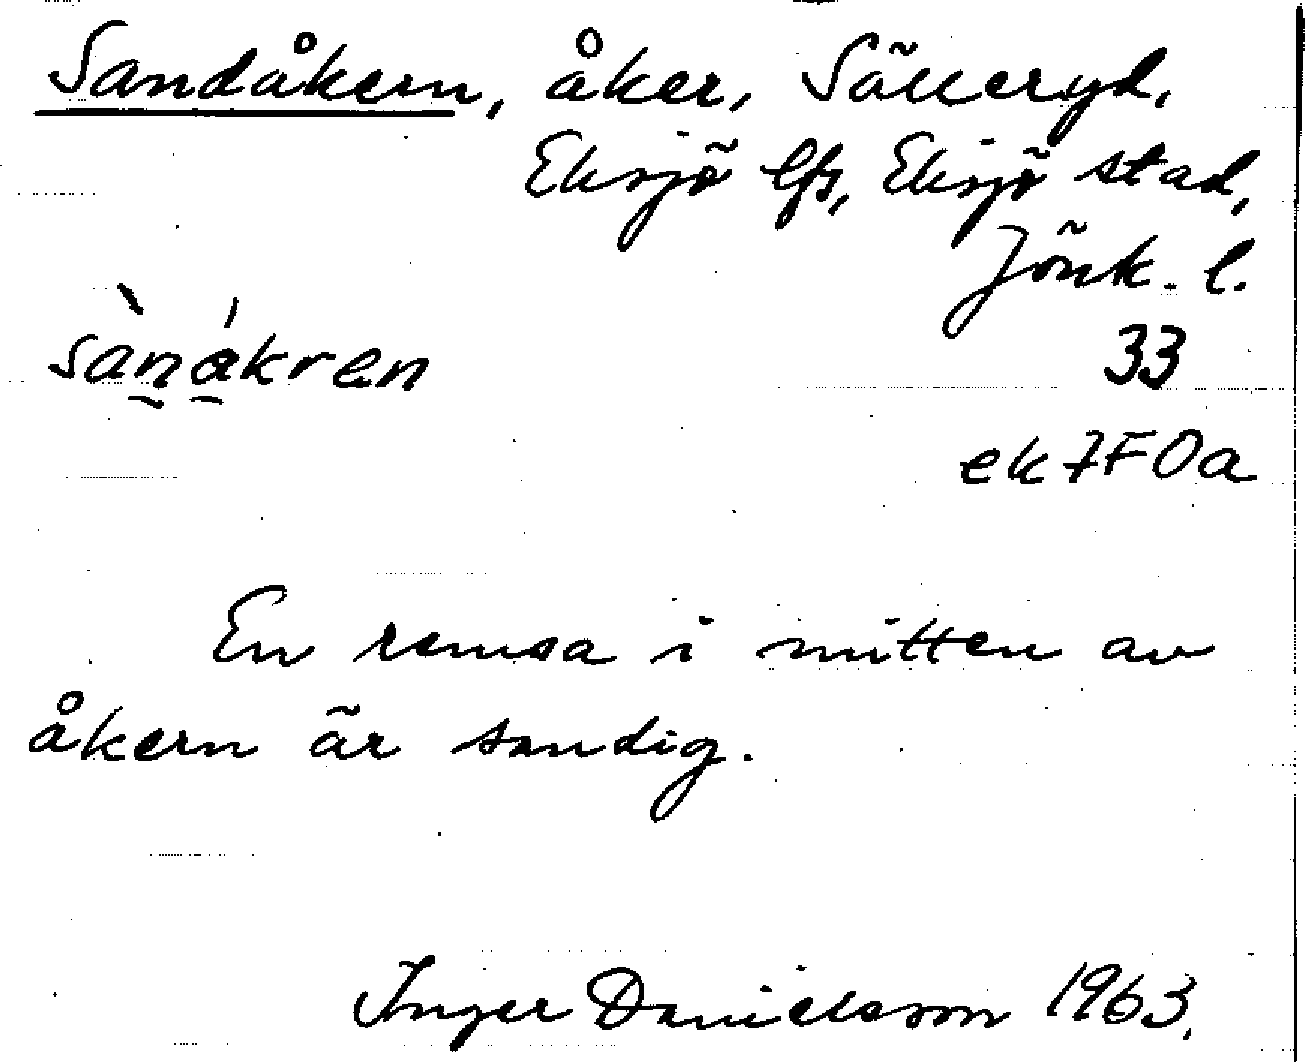 Sandåkern, åker, Sälleryd,
Eksjö lfs, Eksjö stad,
Jönk. l.
sànákren
33
ek 7F0a
En remsa i mitten av
åkern är sandig.
Inger Danielsson 1963.